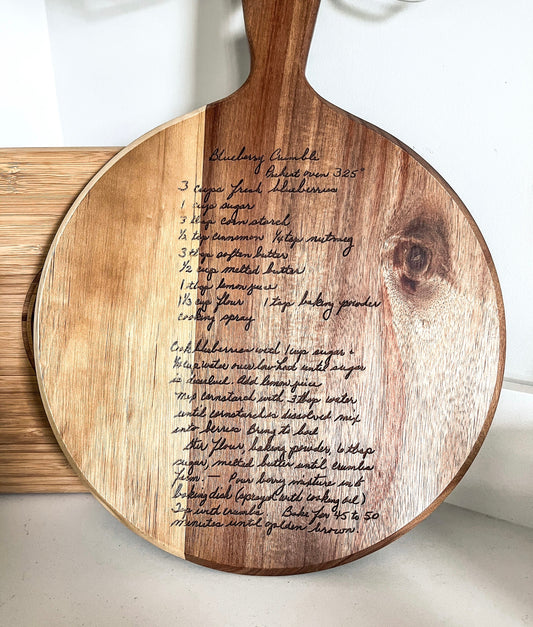 Blueberry Crumble
Preheat oven 325°
3 cups fresh blueberries
1 cup sugar
3 tbsp corn starch
½ tsp cinnamon ¼ tsp nutmeg
3 tbsp soften butter
½ cup melted butter
1 tbsp lemon juice
1⅓ cup flour 1 tsp baking powder
cooking spray
Cook blueberries with 1 cup sugar +
cup water over low heat until sugar
is dissolved. Add lemon juice
Mix cornstarch with 3 tbsp water
until cornstarch is dissolved mix
into berries Bring to boil
Stir flour, baking powder, 6 tbsp
sugar, melted butter until crumbs
form. — Pour berry mixture into
baking dish (sprayed with cooking oil)
Top with crumbs. Bake for 45 to 50
minutes until golden brown.